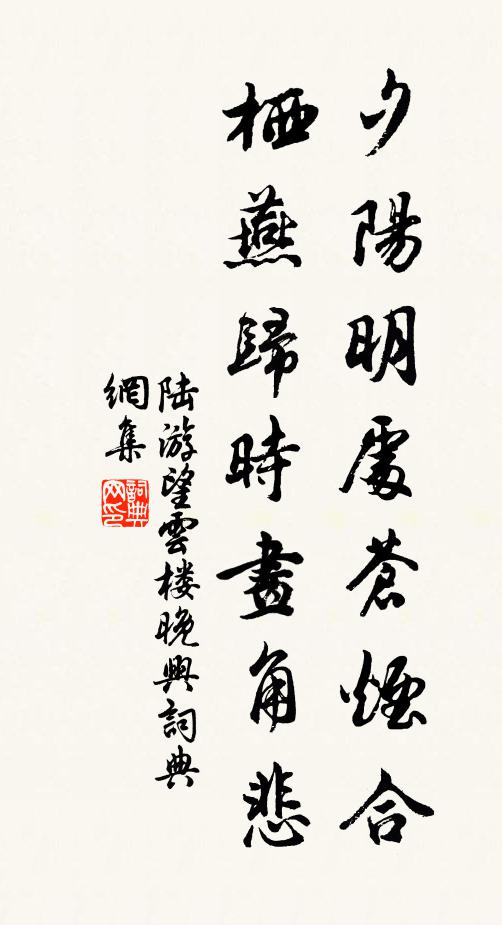 夕陽明處蒼煙合
栖燕歸時畫角悲
陸游望雲楼晚興詞典
網集
詞典
网印